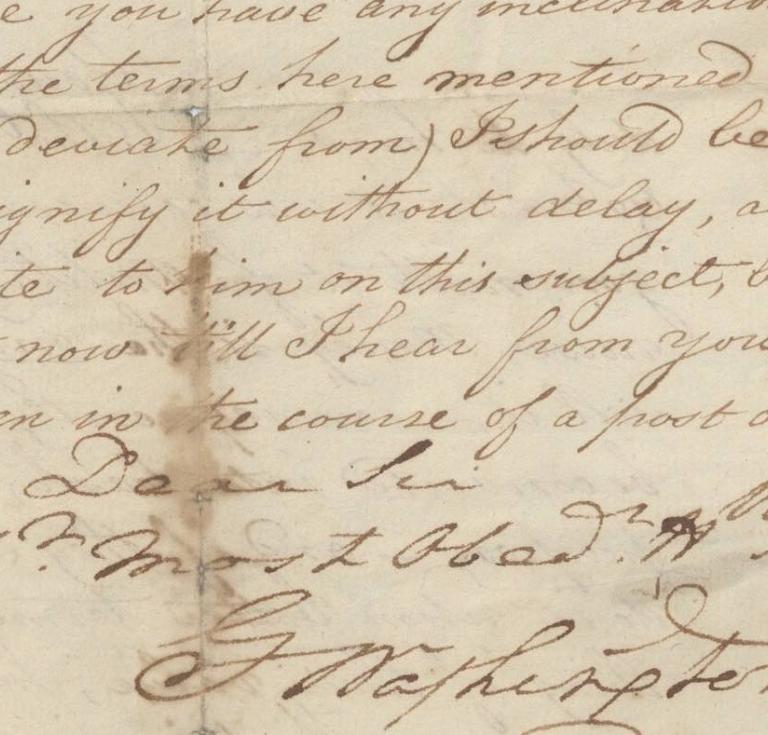 e you have any inclination
the terms here mentioned
deviate from) I should be
ignify it without delay, a
te to him on this subject, b
now till I hear from you
en in the course of a post o
Dear Sir
Yr. Most Obedt. H
G Washington